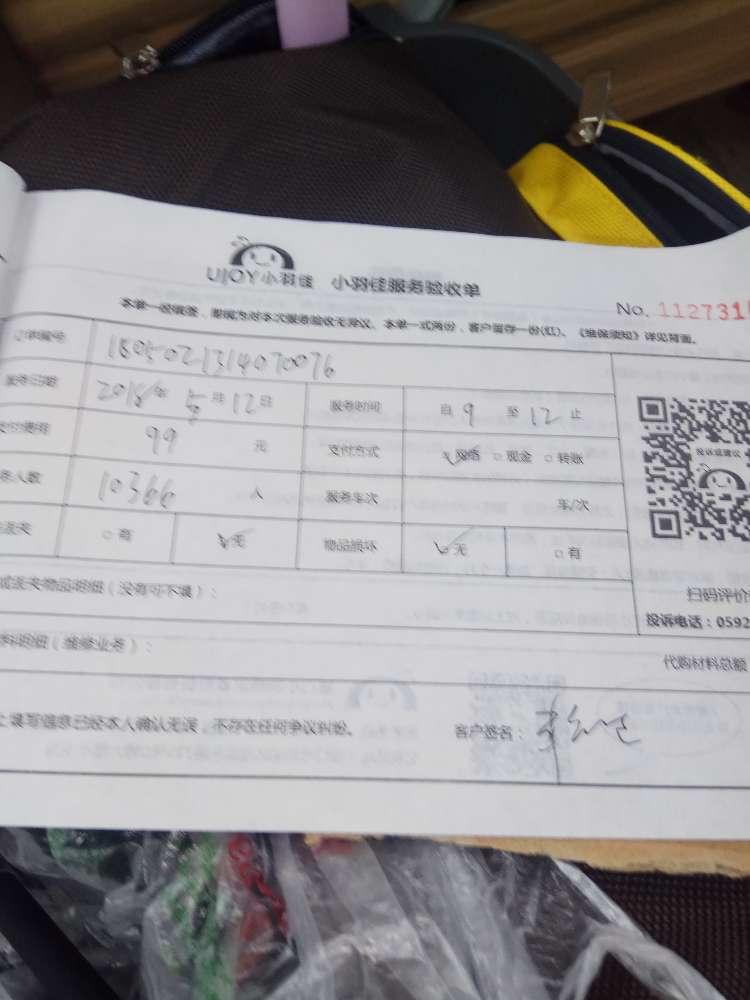 UJOY小羽佳 小羽佳服务验收单
No. 112731
本单一经填签，即视为对本次服务验收无异议。本单一式两份，客户留存一份(红)。《维保须知》详见背面。
订单编号 1805021314070076
服务日期 2018年 5月12日 服务时间 自 9 至 12 止
支付费用 99 元 支付方式 网络 □现金 □转账
务人数 10366 人 服务车次 车/次
丢失 □有 无 物品损坏 无 □有
投诉或建议
扫码评价
投诉电话：0592
或丢失物品明细（没有可不填）：
料明细（维修业务）： 代购材料总额
上填写信息已经本人确认无误，不存在任何争议纠纷。 客户签名：